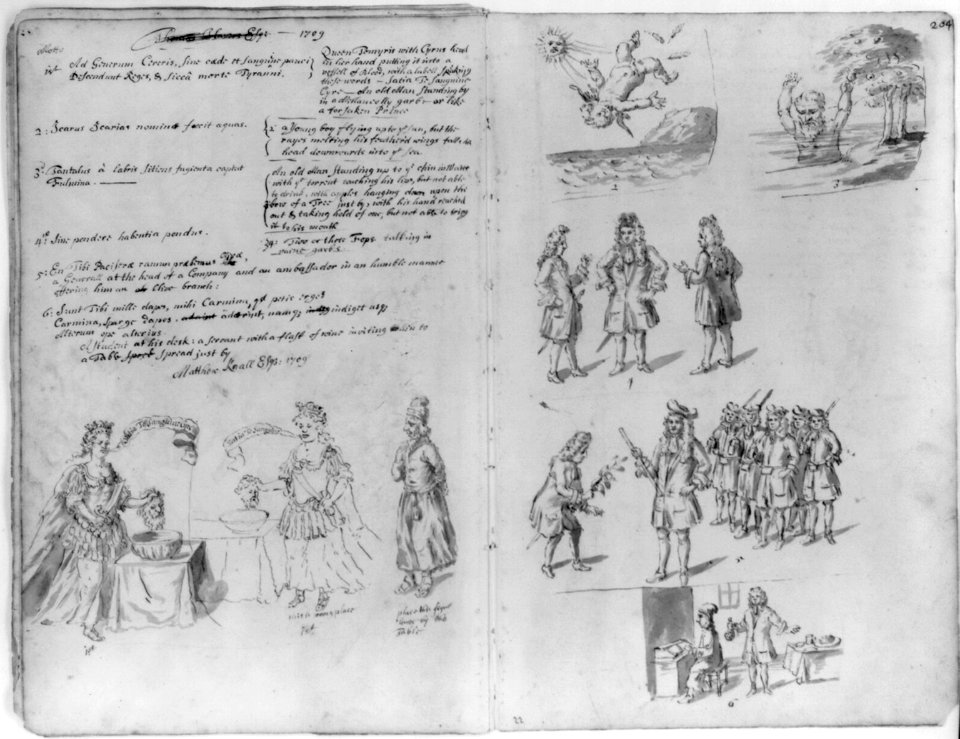 Esqr — 1709
Motto
1st Ad Generum Cereris, sine cæde et sanguine pauci
Descendunt Reges, & siccâ morte Tyranni.
Queen Tomyris with Cyrus head
in her hand putting it into a
vessell of blood, with a label speaking
these words — Satia Te sanguine
Cyre — An old Man standing by
in a Melancolly garb or like
a forsaken Prince
2. Icarus Icarias nomine fecit aquas.
2 a Young boy flying up to ye sun, but the
rayes melting his featherd wings falls
head downwards into ye sea
3d Tantalus à labris sitiens fugientia captat
Flumina.
An old Man standing up to ye chin in Water
with ye torrent touching his lips, but not able
to drink, with apples hanging down upon the
of a Tree just by, with his hand reached
out & taking hold of one, but not able to bring
it to his mouth
4th. Sine pondere habentia pondus.
4th Two or three Fops talking in
garbs
5: En Tibi Paciferæ ramum
a Generall at the head of a Company and an ambassador in an humble manner
offering him an Olive branch:
6: Sunt Tibi mille dapes, mihi Carmina, qd petis ergo
Carmina, sparge dapes. indiget usq
Alterum ope alterius.
A Student at his desk: a servant with a flask of wine inviting him to
a Table spread just by
Matthew Knall Esqr: 1709
1st
1st
place this figure
by the
Table
204
2
3
4
5
6
22